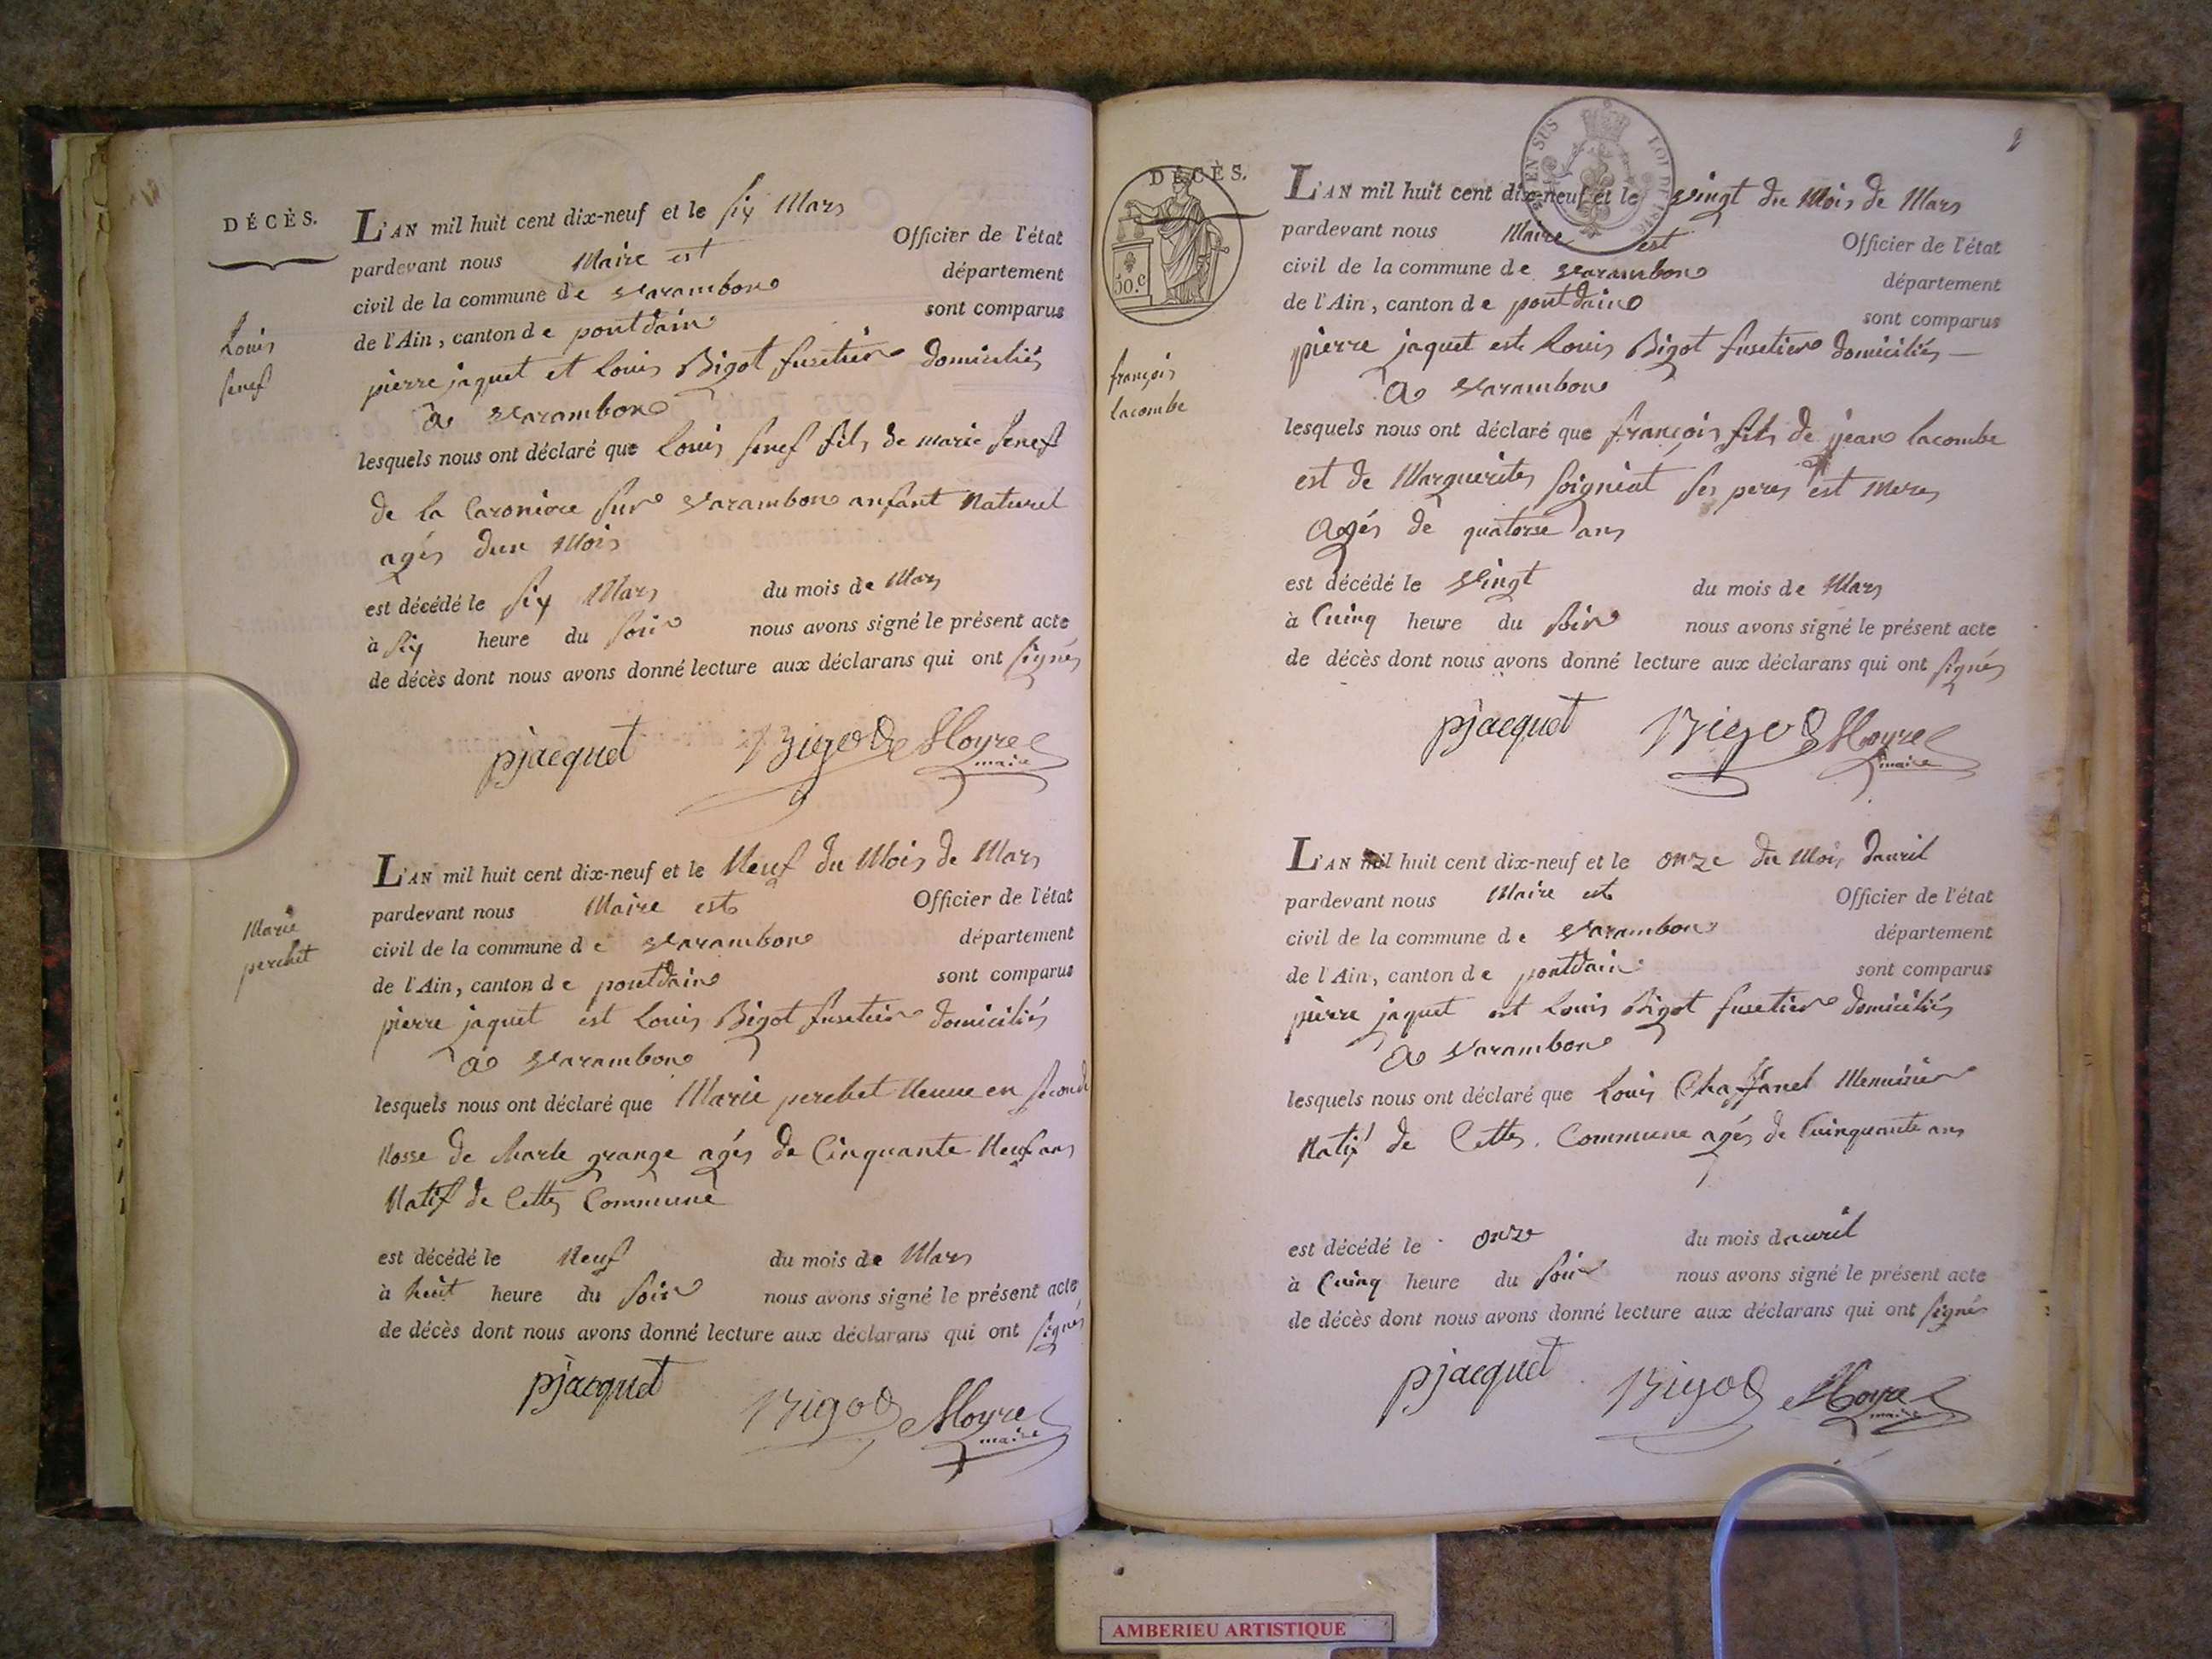 DÉCÈS.
Louis
senef
L'AN mil huit cent dix-neuf et le six Mars
pardevant nous Maire est Officier de l'état
civil de la commune de Varambon département
de l'Ain, canton de pontdain sont comparus
pierre jaquet et Louis Bigot fusetier domiciliés
a Varambon
lesquels nous ont déclaré que Louis senef fils de marie senef
de la Caroniere sur Varambon anfant Naturel
agés dun Mois
est décédé le six Mars du mois de Mars
à six heure du soir nous avons signé le présent acte
de décès dont nous avons donné lecture aux déclarans qui ont signés
pjacquet Bigod Moyre
maire
Marie
perchet
L'AN mil huit cent dix-neuf et le Neuf du Mois de Mars
pardevant nous Maire est Officier de l'état
civil de la commune de Varambon département
de l'Ain, canton de pontdain sont comparus
pierre jaquet est Louis Bigot fusetier domiciliés
a Varambon
lesquels nous ont déclaré que Marie perchet Veuve en seconde
Nosse de Charle grange agés de Cinquante Neuf ans
Natif de Cette Commune
est décédé le Neuf du mois de Mars
à huit heure du soir nous avons signé le présent acte
de décès dont nous avons donné lecture aux déclarans qui ont signés
pjacquet Bigod Moyre
maire
DÉCÈS.
50.c
EN SUS
LOI DE 1816
françois
lacombe
L'AN mil huit cent dix-neuf et le vingt du Mois de Mars
pardevant nous Maire est Officier de l'état
civil de la commune de Varambon département
de l'Ain, canton de pontdain sont comparus
pierre jaquet est Louis Bigot fusetier domiciliés
a Varambon
lesquels nous ont déclaré que françois fils de jean lacombe
est de Marguerite soigniat ses peres est Meres
agés de quatorse ans
est décédé le Vingt du mois de Mars
à Cuinq heure du soir nous avons signé le présent acte
de décès dont nous avons donné lecture aux déclarans qui ont signés
pjacquet Bigod Moyre
maire
L'AN mil huit cent dix-neuf et le onze du Mois davril
pardevant nous Maire est Officier de l'état
civil de la commune de Varambon département
de l'Ain, canton de pontdain sont comparus
pierre jaquet est Louis Bigot fusetier domiciliés
a Varambon
lesquels nous ont déclaré que Louis Chaffanel Menuisier
Natif de Cette Commune agés de Cuinquante ans
est décédé le onze du mois davril
à Cuinq heure du soir nous avons signé le présent acte
de décès dont nous avons donné lecture aux déclarans qui ont signés
pjacquet Bigod Moyre
maire
AMBERIEU ARTISTIQUE